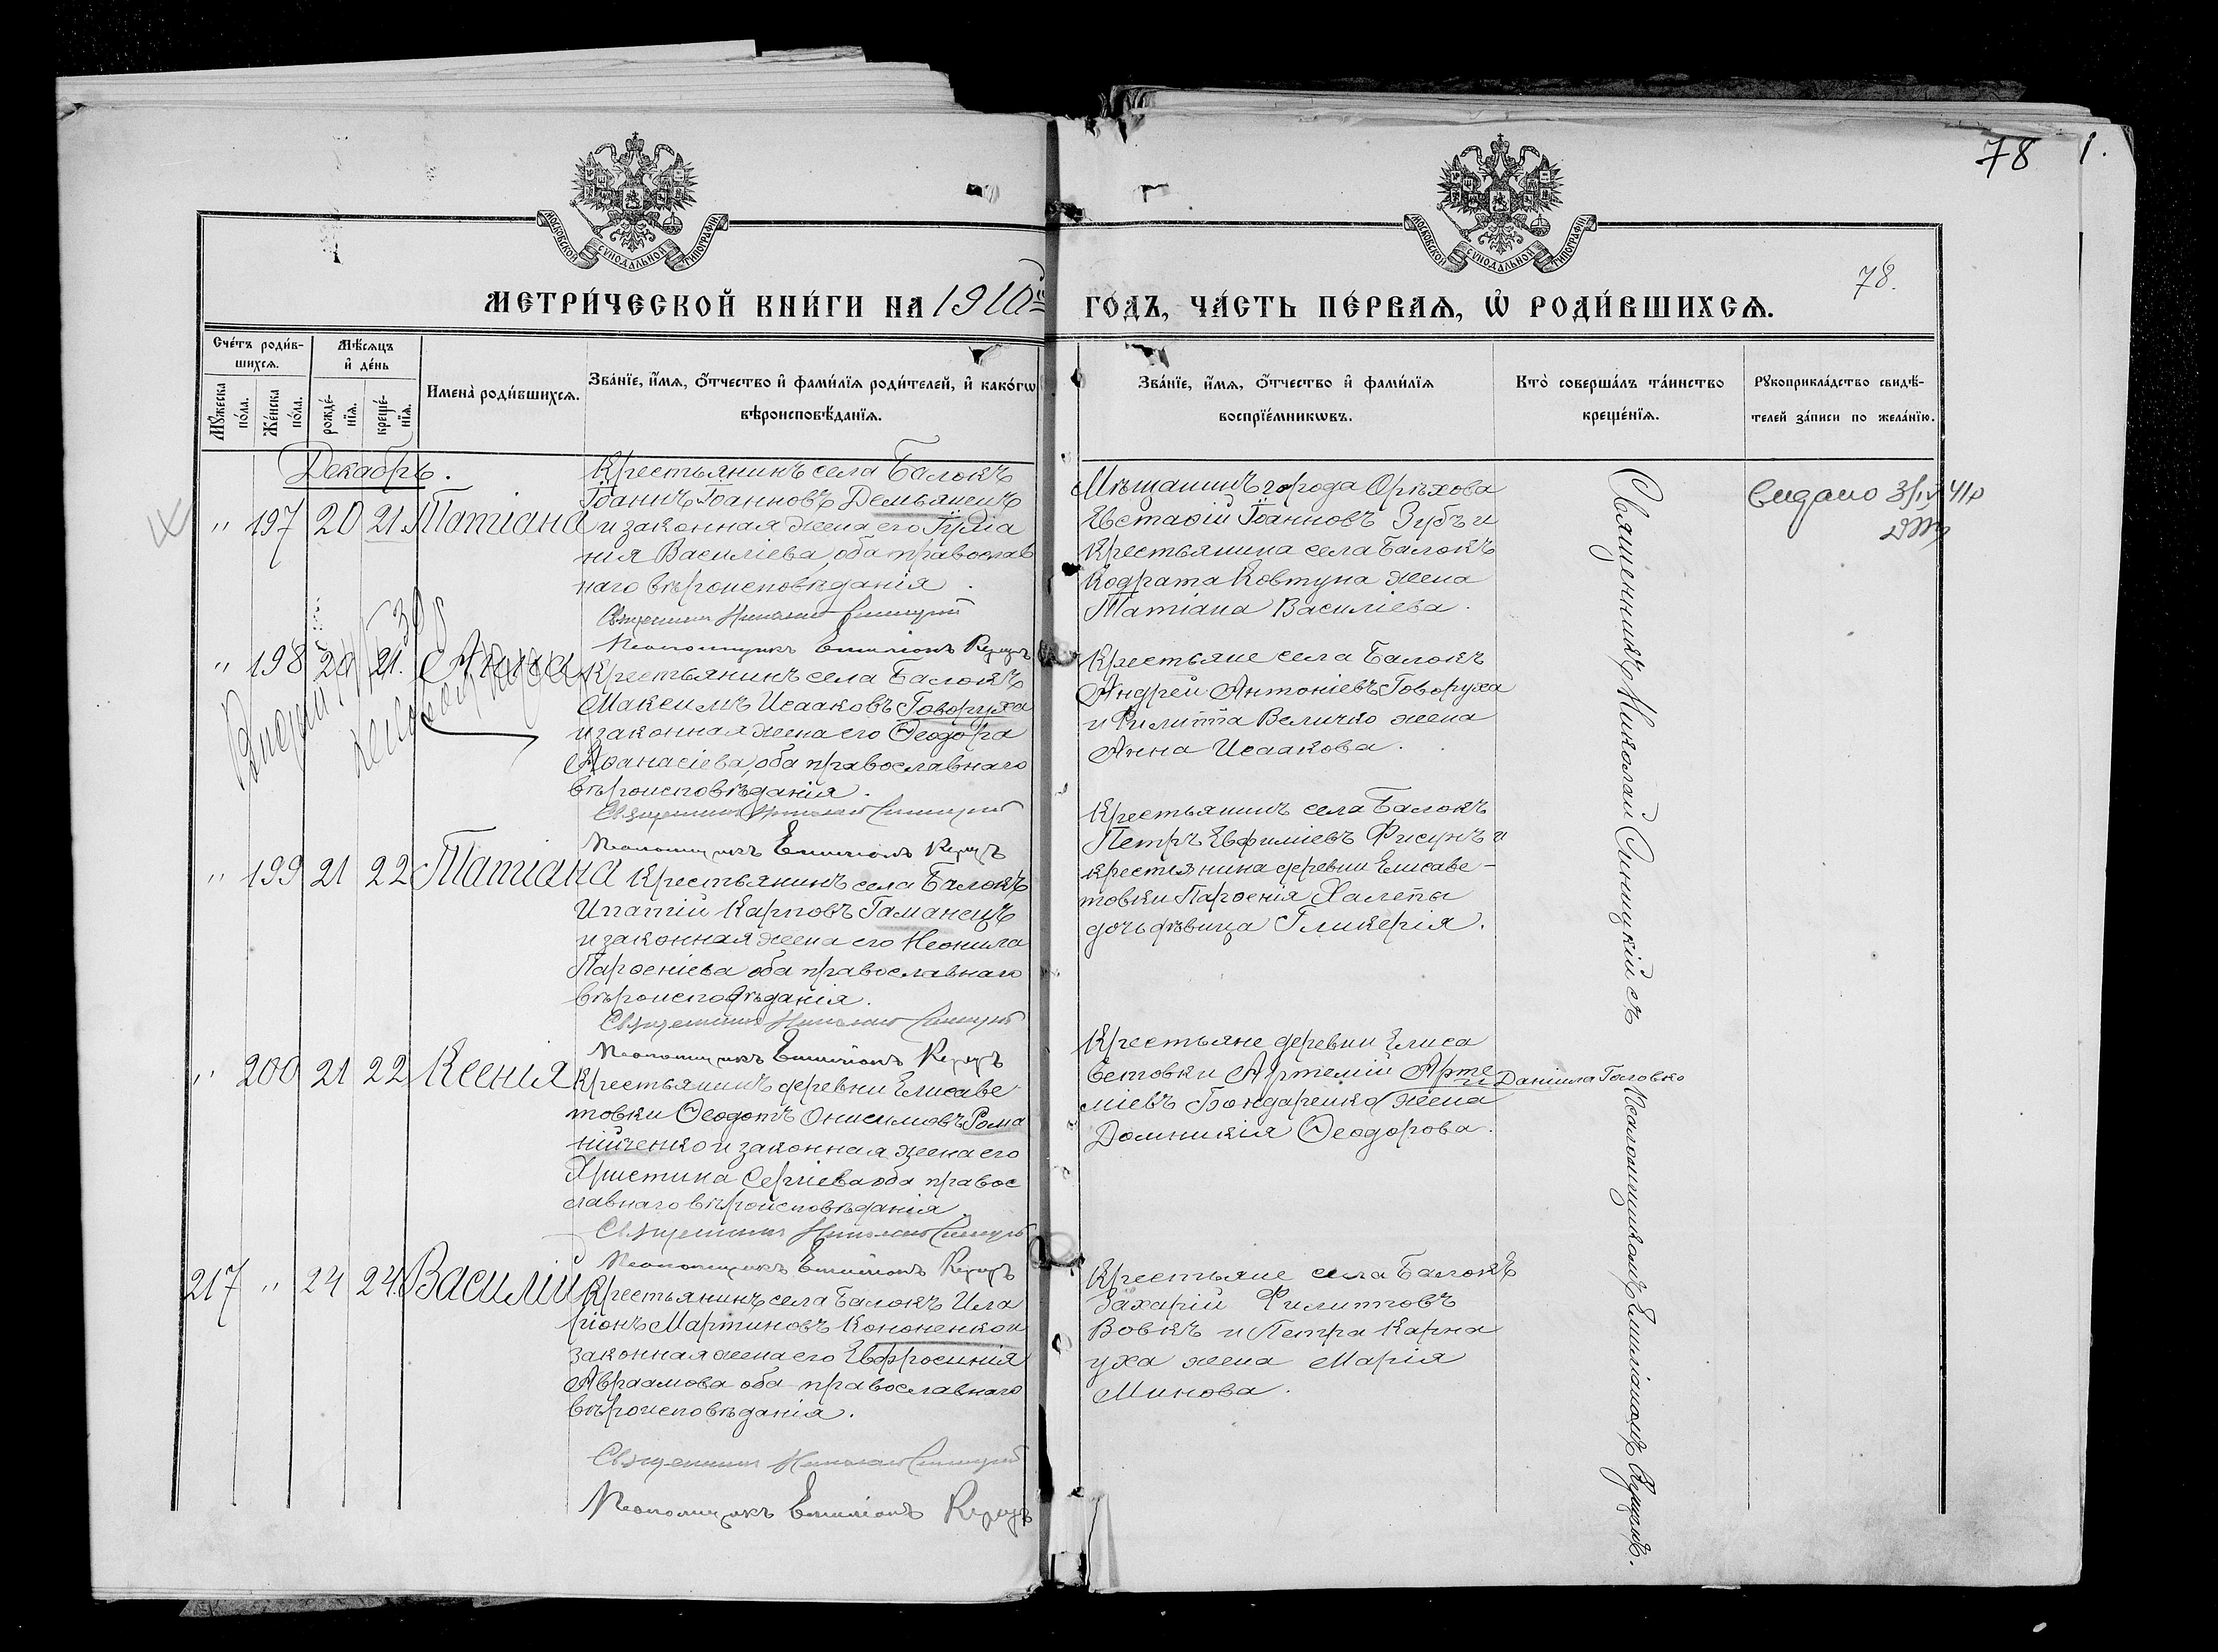 78
1.
МОСКОВСКОЙ СѴНОДАЛЬНОЙ ТИПОГРАФІИ
МОСКОВСКОЙ СѴНОДАЛЬНОЙ ТИПОГРАФІИ
78.
МЕТРИ́ЧЕСКОЙ КНИ́ГИ НА 1910й ГО́ДЪ, ЧА́СТЬ ПЕ́РВАѦ, Ѡ҆ РОДИ́ВШИХСѦ.
Сче́тъ роди́в-
шихсѧ.
Мꙋ́жеска по́ла.
Же́нска по́ла.
Мѣ́сѧцъ и҆ де́нь
рожде́-нїѧ.
креще́-нїѧ.
Имена̀ роди́вшихсѧ.
Зва́нїе, и҆́мѧ, ѻ҆́тчество и҆ фами́лїѧ роди́телей, и҆ како́гѡ
вѣроисповѣ́данїѧ.
Зва́нїе, и҆́мѧ, ѻ҆́тчество и҆ фами́лїѧ
воспрїе́мникѡвъ.
Кто̀ соверша́лъ та́инство
креще́нїѧ.
Рꙋкоприкла́дство свидѣ́-
телей за́писи по жела́нїю.
Декабрь.
" 197 20 21 Татіана
Крестьянинъ села Балокъ
Іоаннъ Іоанновъ Демьянецъ
и законная жена его Іулiа
нія Василіева, оба православ
наго вѣроисповѣданія.
Священникъ Николай Синицкій
Псаломщикъ Емиліонъ
Мѣщанинъ города Орѣхова
Евстафій Іоанновъ Зубъ и
крестьянина села Балокъ
Кодрата Ковтуна жена
Татіана Василіева.
Видано 3/IV 41р
" 198 20 21. Анна
Крестьянинъ села Балокъ
Максимъ Исааковъ Говоруха
и законная жена его Ѳеодора
Аѳанасіева, оба православнаго
вѣроисповѣданія.
Священникъ Николай Синицкій
Псаломщикъ Емиліонъ
Крестьяне села Балокъ
Андрей Антоніевъ Говоруха
и Филиппа Величко жена
Анна Исаакова.
" 199 21 22 Татіана
Крестьянинъ села Балокъ
Ипатій Карповъ Гаманецъ
и законная жена его Неонила
Парѳеніева оба православнаго
вѣроисповѣданія.
Священникъ Николай Синицкій
Псаломщикъ Емиліонъ
Крестьянинъ села Балокъ
Петръ Евфиміевъ Фисунъ и
крестьянина деревни Елисаве-
товки Парѳенія Халепы
дочь дѣвица Гликерія.
" 200 21 22 Ксенія
Крестьянинъ деревни Елисаве
товки Ѳеодотъ Онисимовъ Рома
нійченко и законная жена его
Христина Сергіева оба правос
лавнаго вѣроисповѣданія
Священникъ Николай Синицкій
Псаломщикъ Емиліонъ
Крестьяне деревни Елиса
ветовки Артемій Арте
міевъ Бондаренко и Даніила Головко жена
Домникія Ѳеодорова.
217 " 24 24 Василій
Крестьянинъ села Балокъ Ила
ріонъ Мартиновъ Кононенко и
законная жена его Евфросинія
Авраамова оба православнаго
вѣроисповѣданія.
Священникъ Николай Синицкій
Псаломщикъ Емиліонъ
Крестьяне села Балокъ
Захарій Филипповъ
Вовкъ и Петра Карна
уха жена Марія
Минова.
Священникъ Николай Синицкій съ
Псаломщикомъ Емиліаномъ